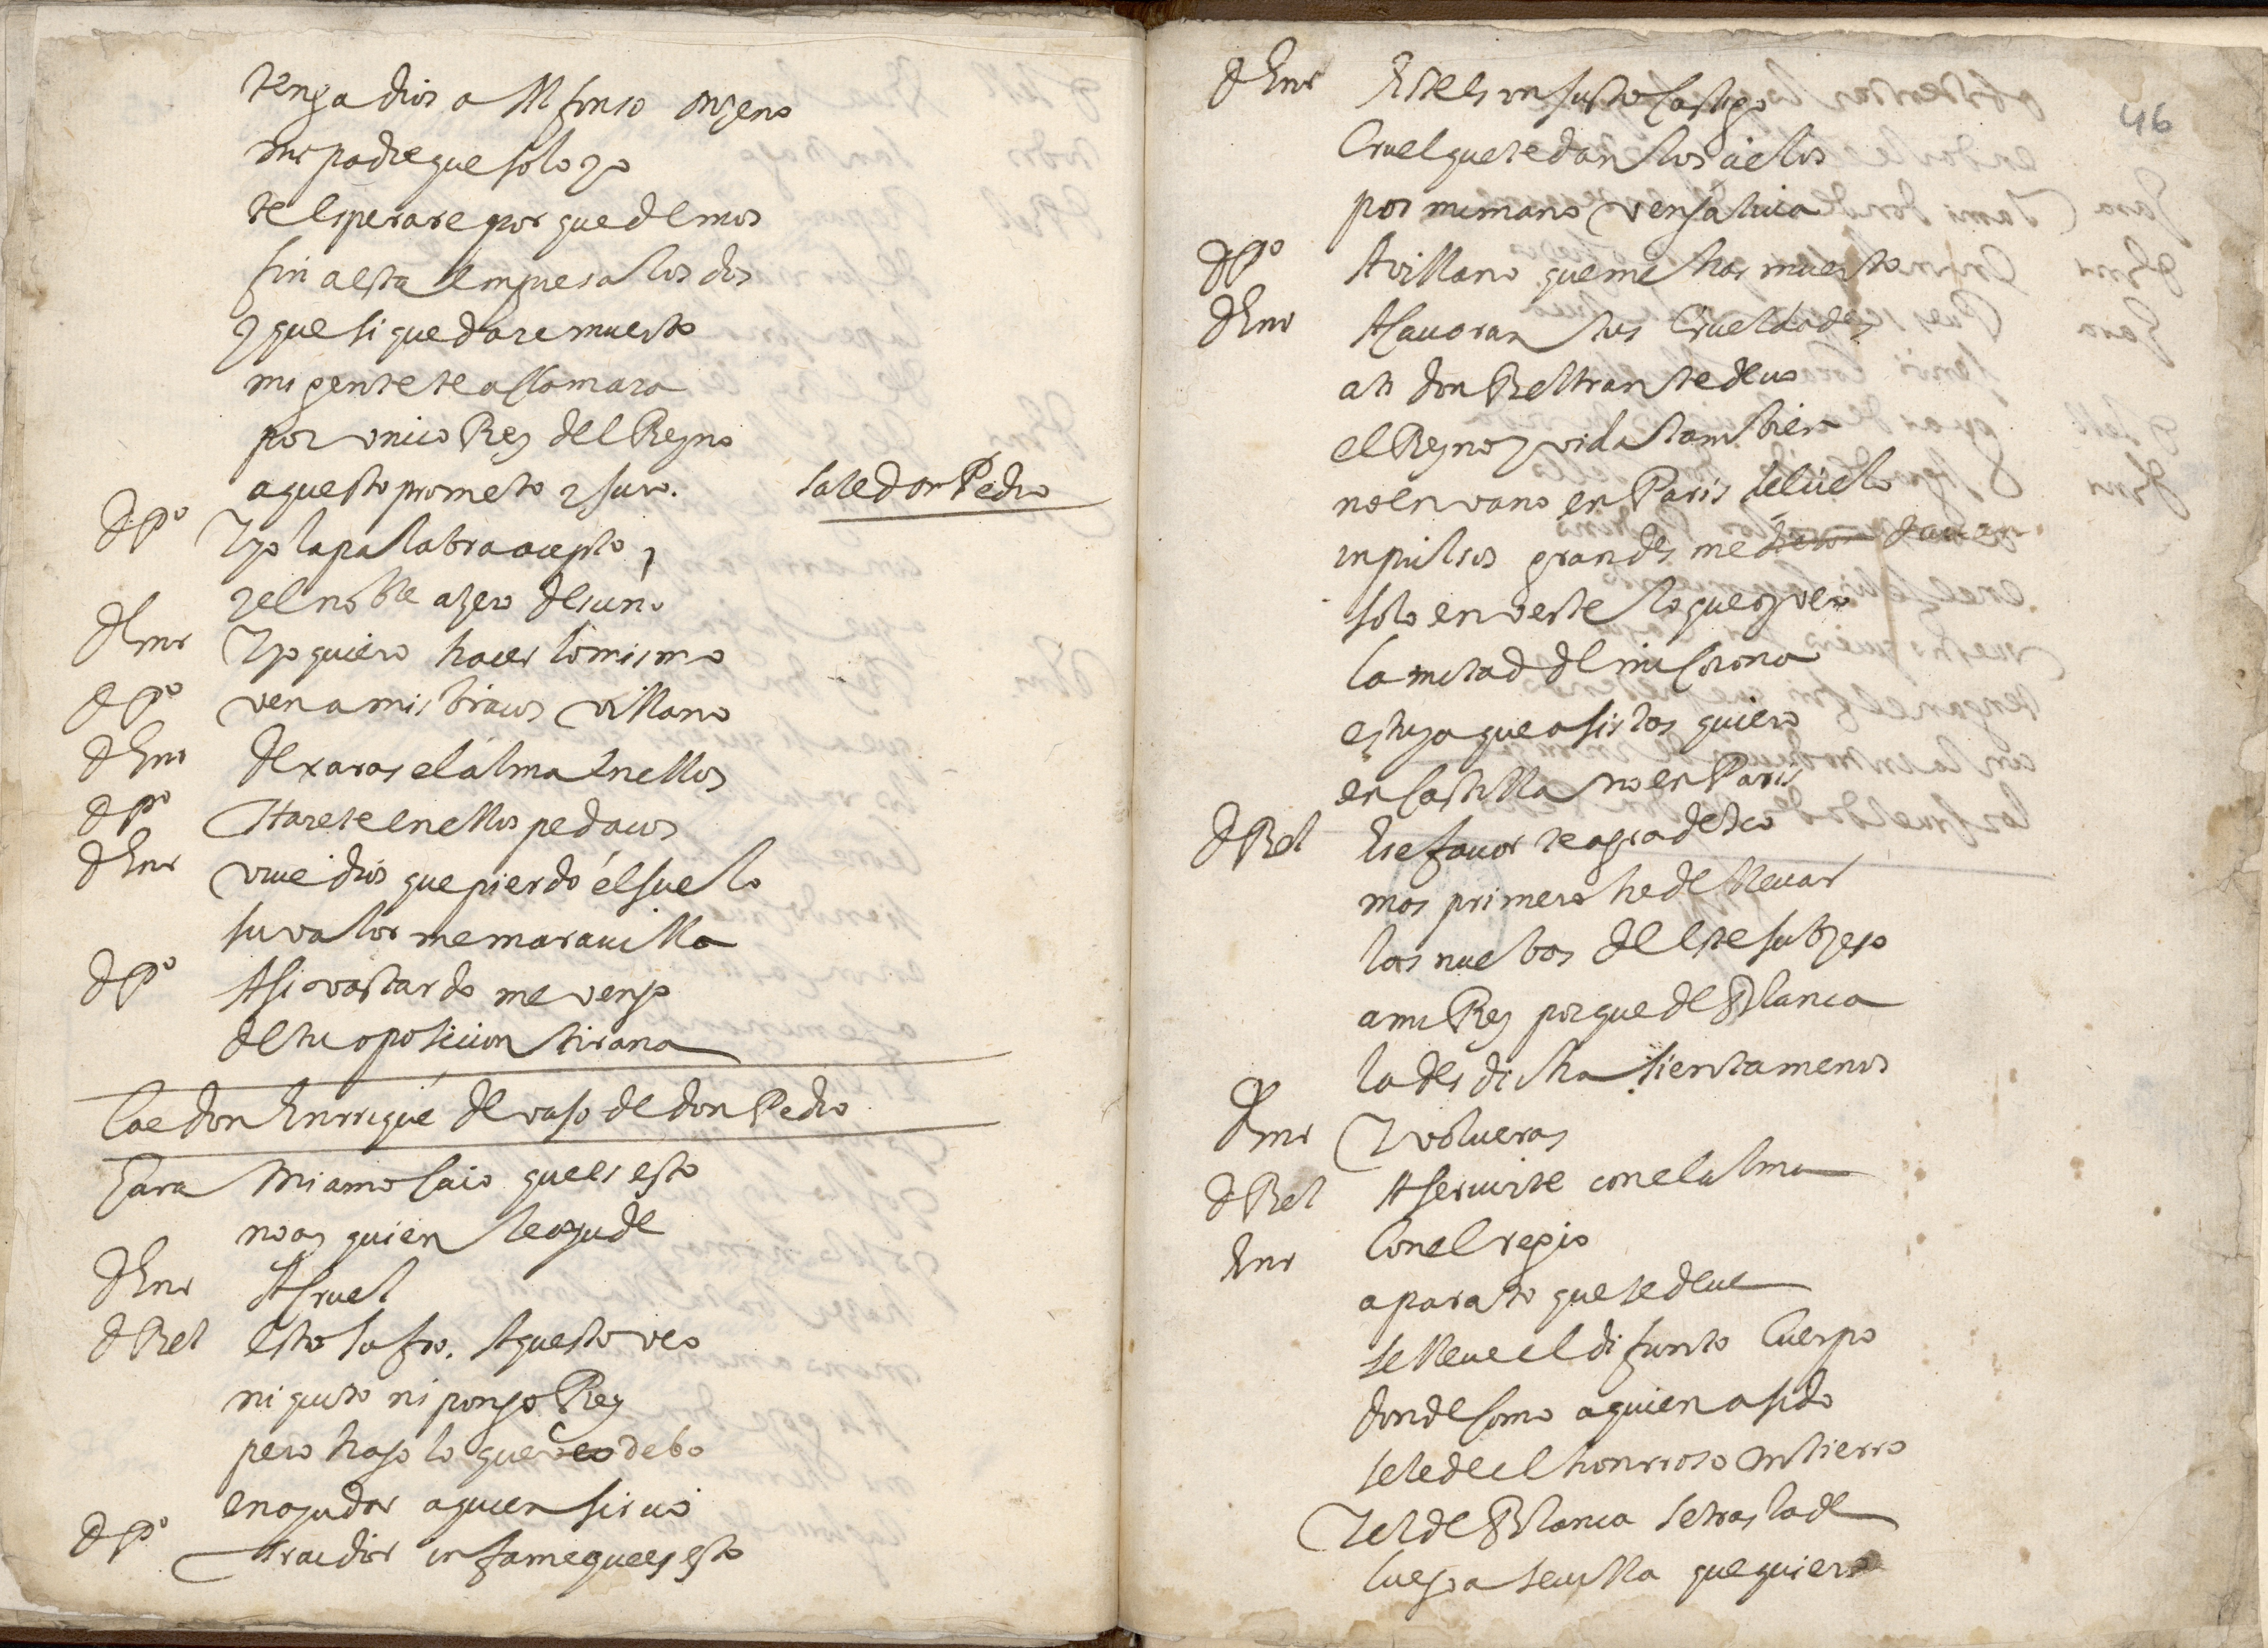 tenga dios a Alfonso onzeno
mi padre que solo yo
te esperare por que demos
fin a esta empresa los dos
y que si quedare muerto
mi gente te aclamara
por unico Rey del Reyno
aquesto prometo y juro. sale don Pedro
d Po Y yo la palabra acepto
y el noble azero desnu
d Enr Y yo quiero hacer lo mismo
d Po ven a mis bracos villano
d Enr dexaras el alma en ellos
d Po Harete en ellos pedacos
d Enr vive dios que pierdo el suelo
su valor me maravilla
d Po Asi vastardo me vengo
de tu oposicion tirana
Cae don Enrrique devaso de don Pedro
Jara Mi amo caio que es esto
no ay quien le ayude
d Enr A cruel
d Bel esto sufro. Aquesto veo
ni quito ni pongo Rey
pero hago lo que veo debo
en ayudar a quien sirvo
d Po traidor infame que es esto
46
d Enr Este es un justo castigo
Cruel que te dan los cielos
por mi mano vengativa
d Po A villano que me has muerto
d Enr Acavoran tus crueldades
a ti don Beltran te devo
el Reyno y vida tambien
no en vano en Paris el cielo
inpulsos grandes me
solo en verte lo que oy veo
la mitad de mi corona
es tuya que asistas quiero
en Castilla no en Paris
d Bel Ese favor te agradesco
mas primero he de llevar
las nuebas de este subzeso
a mi Rey porque de Blanca
la desdicha sienta menos
d Enr Y volveras
d Bel A servirte con el alma
Enr Con el regio
aparato que se deve
se lleve el difunto Cuerpo
donde como a quien a sido
se le de el honrroso entierro
Y el de Blanca se traslade
luego a sevilla que quiero